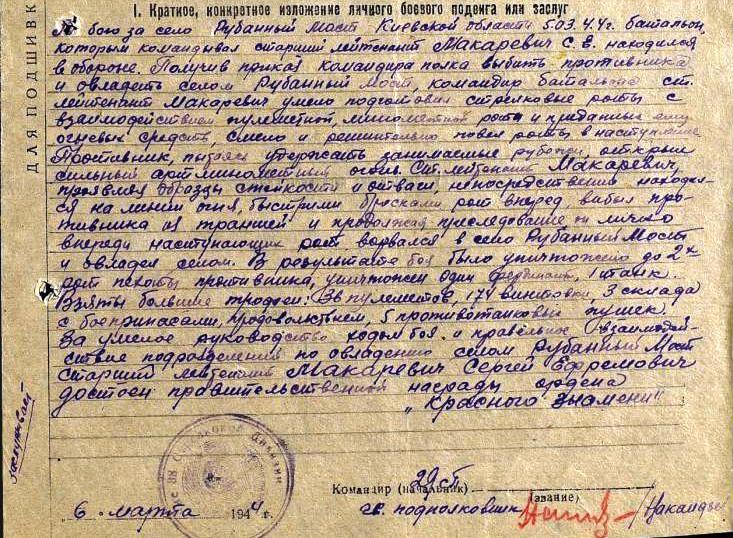 ДЛЯ ПОДШИВКИ
I. Краткое, конкретное изложение личного боевого подвига или заслуг
В бою за село Рубанный Мост Киевской области 5.03.44г. батальон,
которым командывал старший лейтенант Макаревич С.Е. находился
в обороне. Получив приказ командира полка выбить противника
и овладеть селом Рубанный Мост, командир батальона ст.
лейтенант Макаревич умело подготовил стрелковые роты с
взаимодействием пулеметной, минометной роты и приданных ему
огневых средств, смело и решительно повел роты в наступление
Противник, пытаясь удержать занимаемые рубежи, открыл
сильный артминометный огонь. Ст. лейтенант Макаревич,
проявляя образцы стойкости и отваги, непосредственно находил-
ся на линии огня, быстрыми бросками рот вперед, выбил про-
тивника из траншей и продолжая преследование он лично
впереди наступающих рот ворвался в село Рубанный Мост
и овладел селом. В результате боя было уничтожено до 2х
рот пехоты противника, уничтожен один фердинанд, 1 танк.
Взяты большие трофеи: 36 пулеметов, 174 винтовки, 3 склада
с боеприпасами, продовольствием, 5 противотанковых пушек.
За умелое руководство ходом боя и правильное взаимодей-
ствие подразделений по овладению селом Рубанный Мост
старший лейтенант Макаревич Сергей Ефремович
достоен правительственной награды ордена
„Красного Знамени"
Командир (начальник) 29 сп
(звание)
гв. подполковник
6 марта 1944 г.